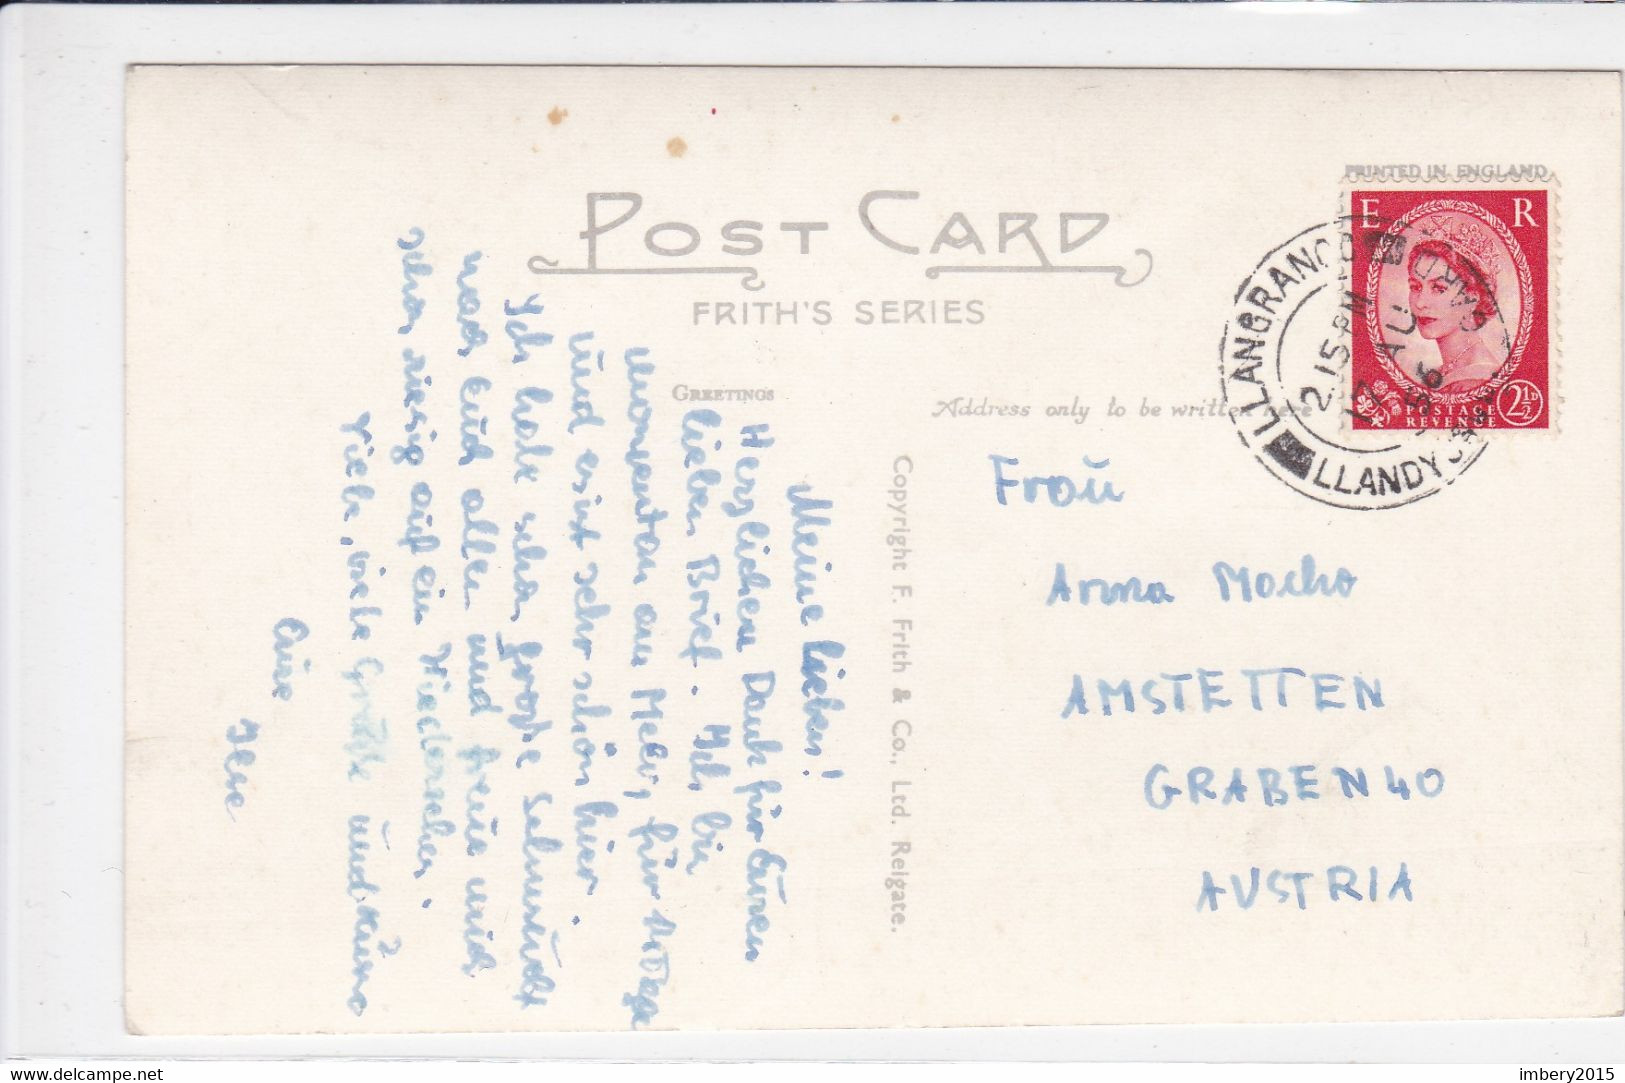 PRINTED IN ENGLAND
POST CARD
FRITH'S SERIES
GREETINGS
Address only to be written here
E R
POSTAGE
REVENUE
2½D
LLANGRANOG
LLANDYSSUL
CARD.
2.15PM
17 AU
56
Copyright F. Frith & Co., Ltd. Reigate.
Meine Lieben!
Herzlichen Dank für Euren
lieben Brief. Ich bin
momentan am Meer, für 10 Tage
und es ist sehr schön hier.
Ich habe schon große Sehnsucht
nach Euch allen und freue mich
schon riesig auf ein Wiedersehen.
Viele, viele Grüße und
Eure
Ilse
Fraū
Anna Mocho
AMSTETTEN
GRABEN 40
AUSTRIA
www.delcampe.net
imbery2015